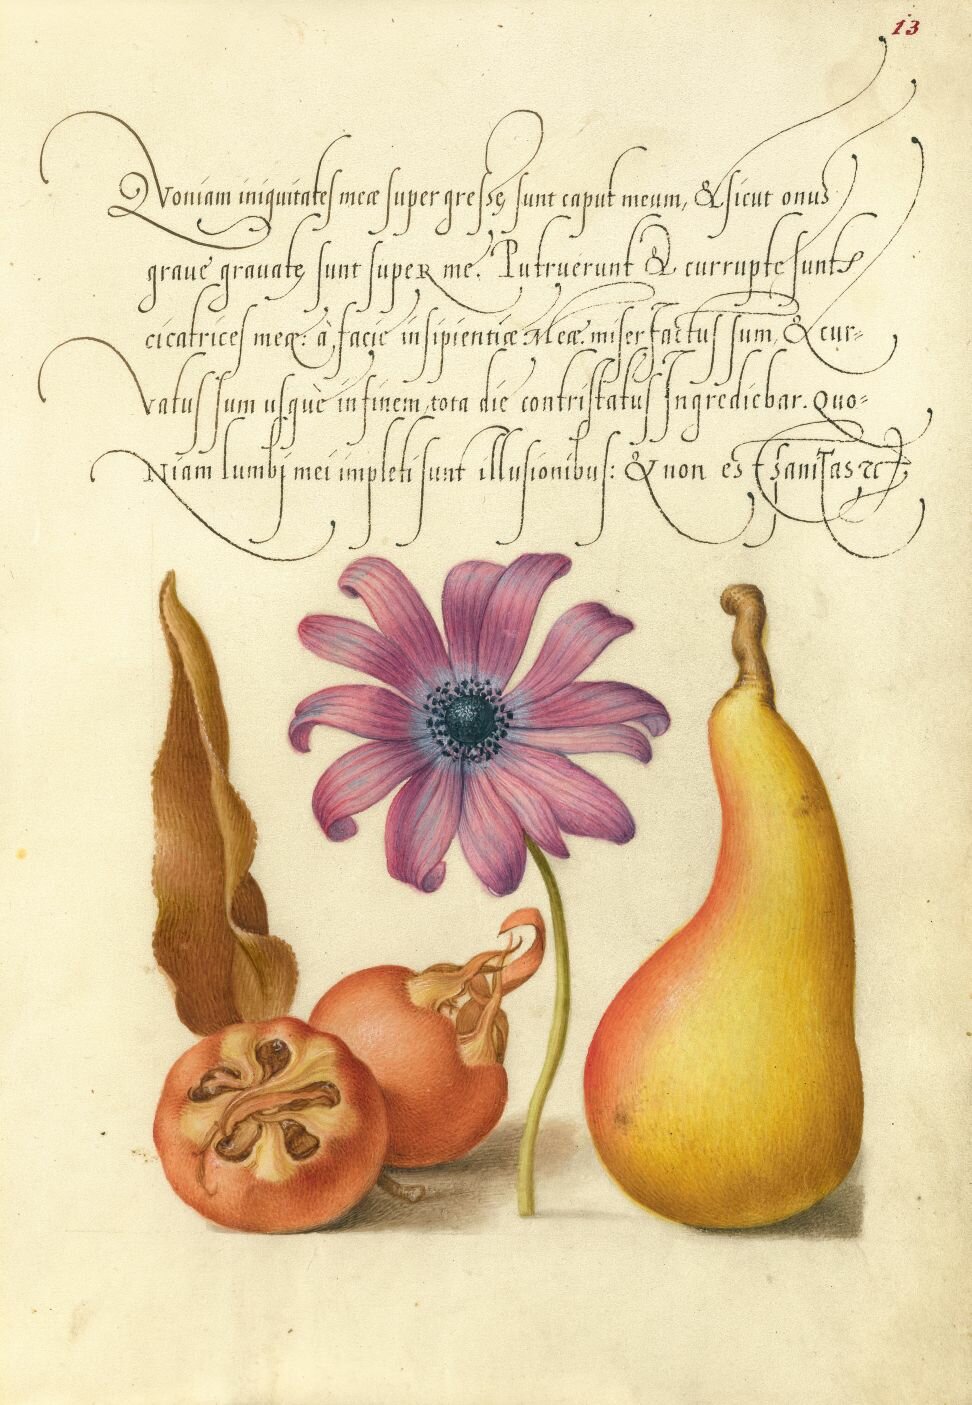 13
Quoniam iniquitates meæ supergressę sunt caput meum, & sicut onus
graue grauatę sunt super me. Putruerunt & currupte sunt
cicatrices meæ: à facie insipientiæ Meæ. miser factus sum, & cur=
vatus sum usquè in finem, tota die contristatus Ingrediebar. Quo=
Niam lumbj mei impleti sunt illusionibus: & non est sanitas &c